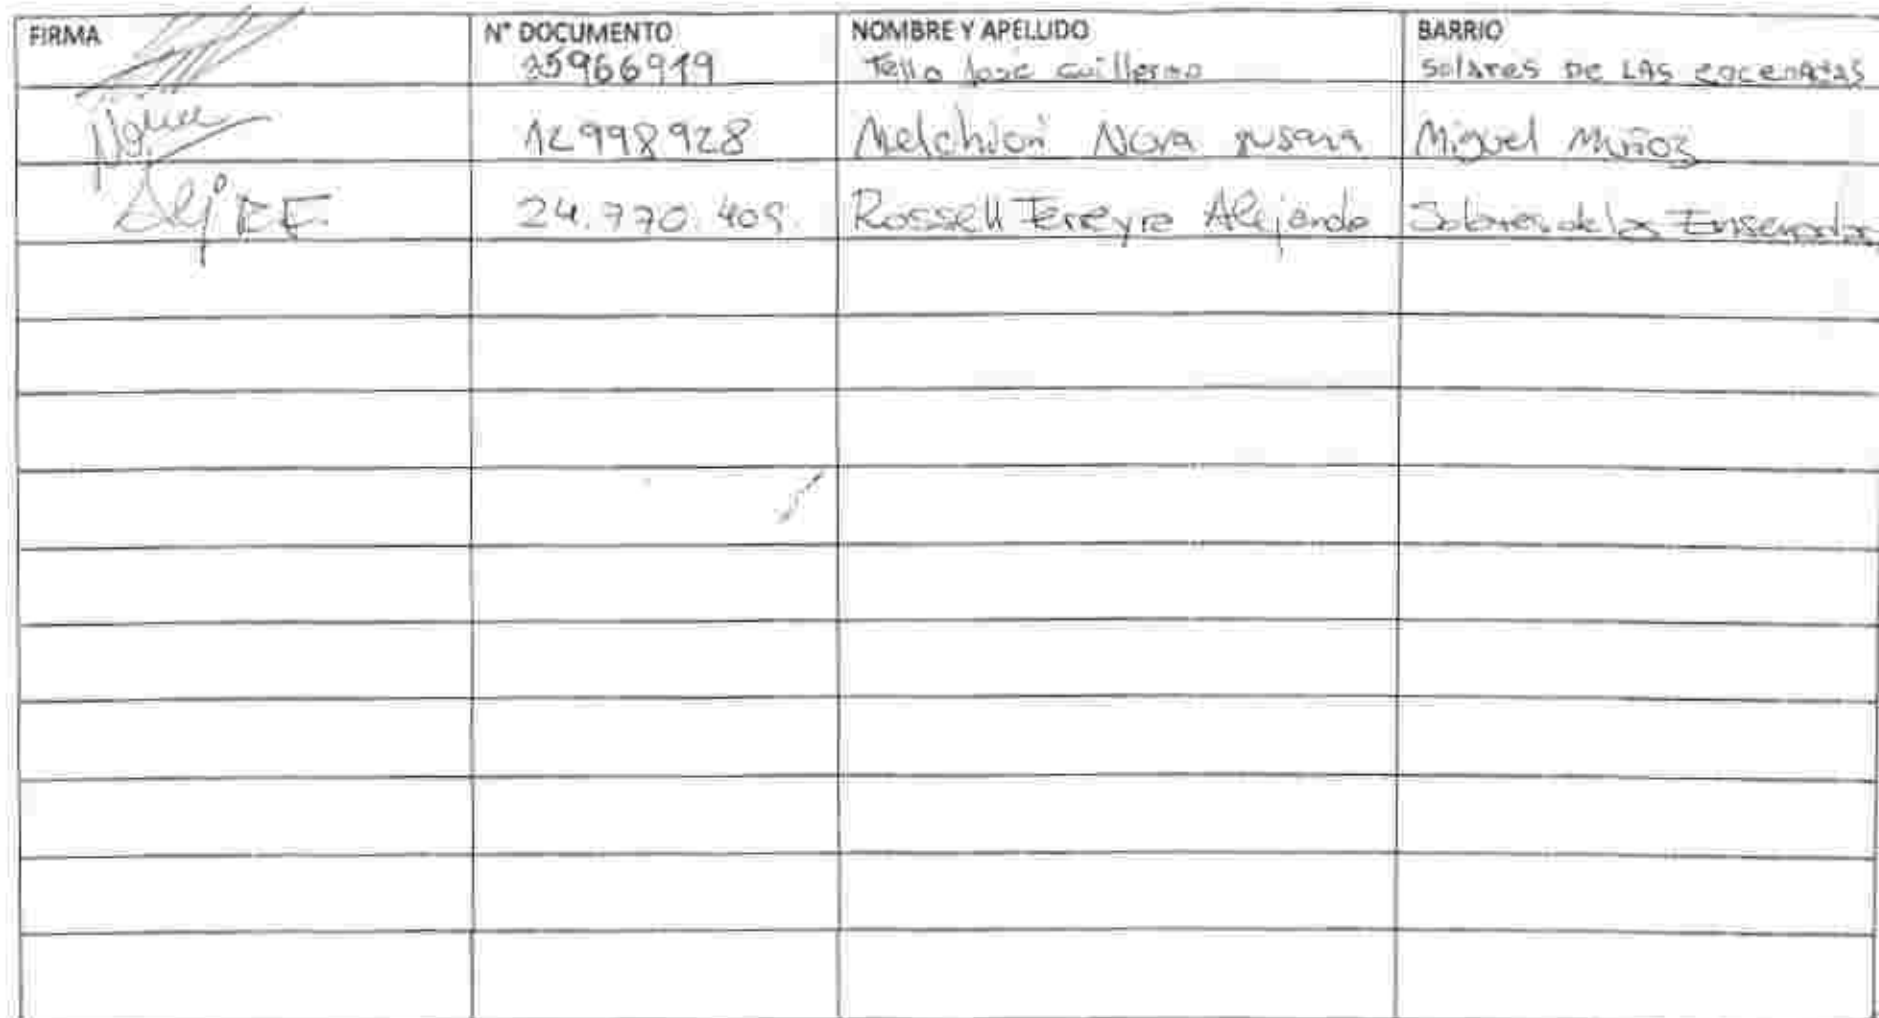 FIRMA N° DOCUMENTO NOMBRE Y APELLIDO BARRIO
35966919 Tello Jose Guillermo Solares DE LAS encenadas
12998928 Melchiori Nora Susana Miguel Muñoz
24.770.409. Rossell Fereyra Alejandro Solares de las Ensenadas